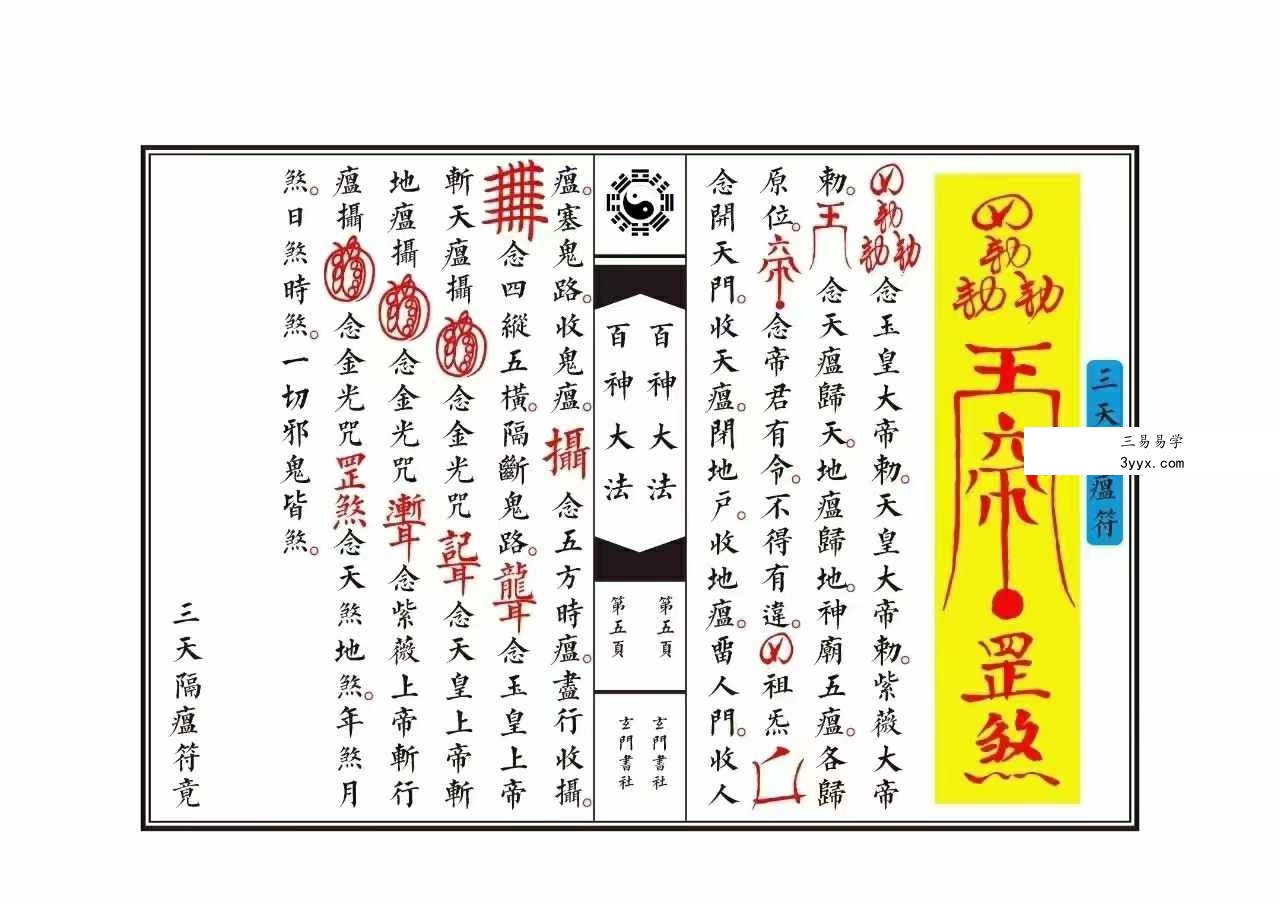 三天
瘟符
三易易学
3yyx.com
勅
勅勅
王
六帝
罡
煞
勅
勅勅
念玉皇大帝勅。天皇大帝勅。紫薇大帝
勅。王念天瘟歸天。地瘟歸地。神廟五瘟。各歸
原位。六帝念帝君有令。不得有違。祖炁
念開天門。收天瘟。閉地戶。收地瘟。畱人門。收人
百神大法
第五頁
玄門書社
百神大法
第五頁
玄門書社
瘟。塞鬼路。收鬼瘟。攝念五方時瘟。盡行收攝。
念四縱五橫。隔斷鬼路。龍耳念玉皇上帝
斬天瘟攝念金光咒記耳念天皇上帝斬
地瘟攝念金光咒漸耳念紫薇上帝斬行
瘟攝念金光咒罡煞念天煞地煞。年煞月
煞。日煞時煞。一切邪鬼皆煞。
三天隔瘟符竟